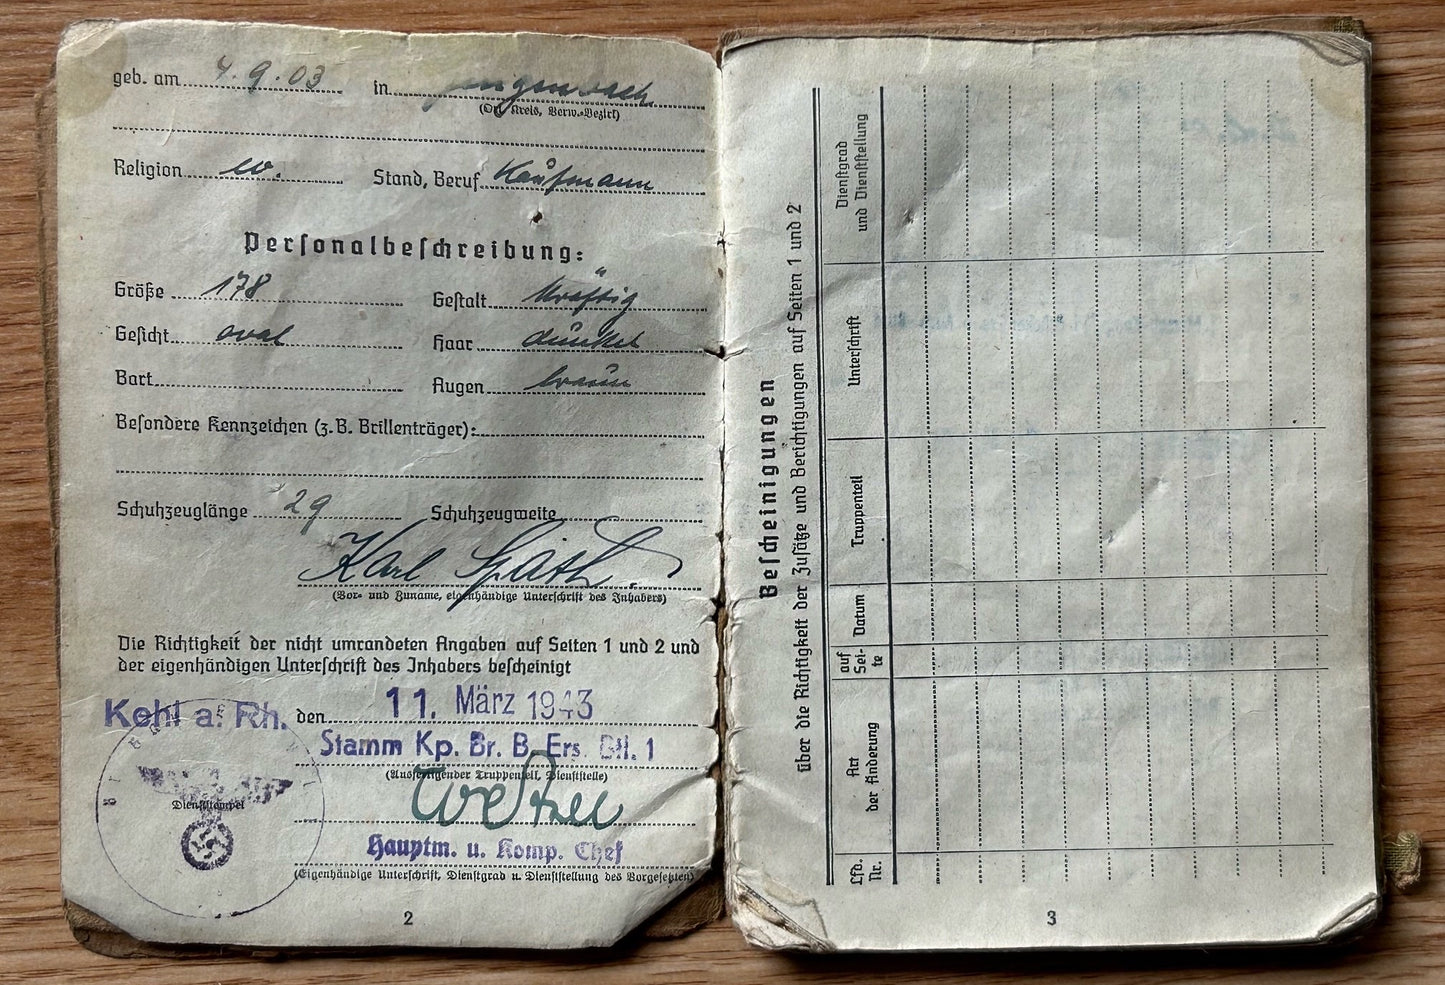 geb. am 4.9.03 in
(Ort, Kreis, Verw.-Bezirk)
Religion ev. Stand, Beruf Kaufmann
Personalbeschreibung:
Größe 178 Gestalt kräftig
Gesicht oval Haar dunkel
Bart Augen braun
Besondere Kennzeichen (z.B. Brillenträger):
Schuhzeuglänge 29 Schuhzeugweite
Karl Späth.
(Vor- und Zuname, eigenhändige Unterschrift des Inhabers)
Die Richtigkeit der nicht umrandeten Angaben auf Seiten 1 und 2 und
der eigenhändigen Unterschrift des Inhabers bescheinigt
Kehl a. Rh. den 11. März 1943
Stamm Kp. Br. B. Ers. Btl. 1
(Ausfertigender Truppenteil, Dienststelle)
Dienststempel
Hauptm. u. Komp. Chef
(Eigenhändige Unterschrift, Dienstgrad u. Dienststellung des Vorgesetzten)
2
Bescheinigungen
über die Richtigkeit der Zusätze und Berichtigungen auf Seiten 1 und 2
Lfd.
Nr.
Art
der Änderung
auf
Sei-
te
Datum
Truppenteil
Unterschrift
Dienstgrad
und Dienststellung
3